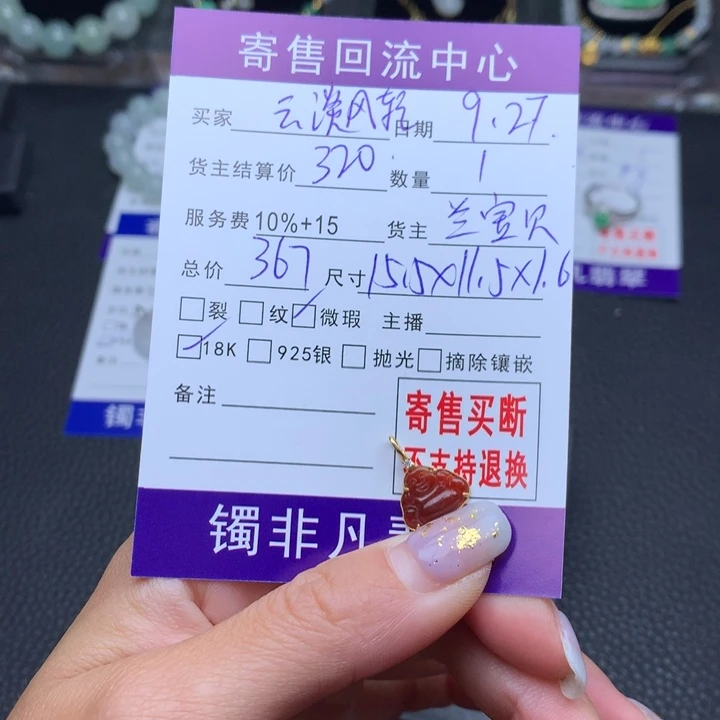 寄售回流中心
买家 云淡风轻 日期 9.27.
货主结算价 320. 数量 1
服务费 10%+15 货主 兰宝贝
总价 367 尺寸 15.5X11.5X1.6
裂 纹 微瑕 主播
18K 925银 抛光 摘除镶嵌
备注
寄售买断
不支持退换
镯非凡